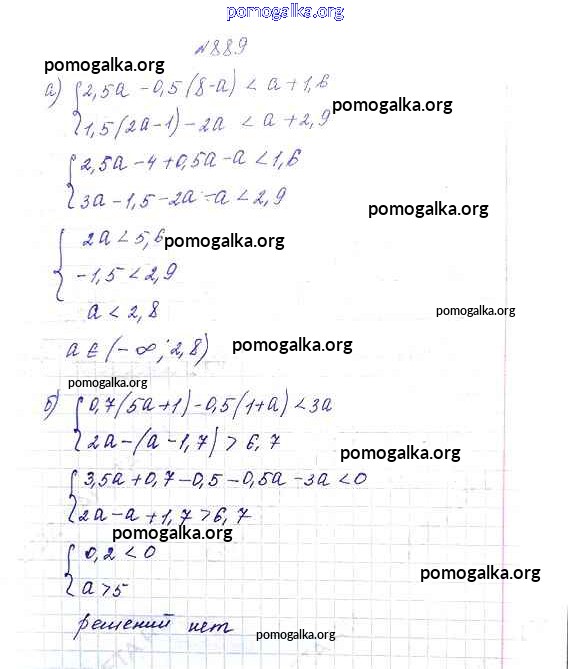 pomogalka.org
№889
pomogalka.org
а) {2,5a - 0,5(8-a) < a + 1,6
pomogalka.org
1,5(2a-1) - 2a < a + 2,9
{2,5a - 4 + 0,5a - a < 1,6
3a - 1,5 - 2a - a < 2,9
pomogalka.org
{2a < 5,6
pomogalka.org
-1,5 < 2,9
a < 2,8
pomogalka.org
a ∈ (-∞; 2,8)
pomogalka.org
pomogalka.org
б) {0,7(5a+1) - 0,5(1+a) < 3a
2a - (a - 1,7) > 6,7
pomogalka.org
{3,5a + 0,7 - 0,5 - 0,5a - 3a < 0
2a - a + 1,7 > 6,7
pomogalka.org
{0,2 < 0
a > 5
pomogalka.org
решений нет
pomogalka.org